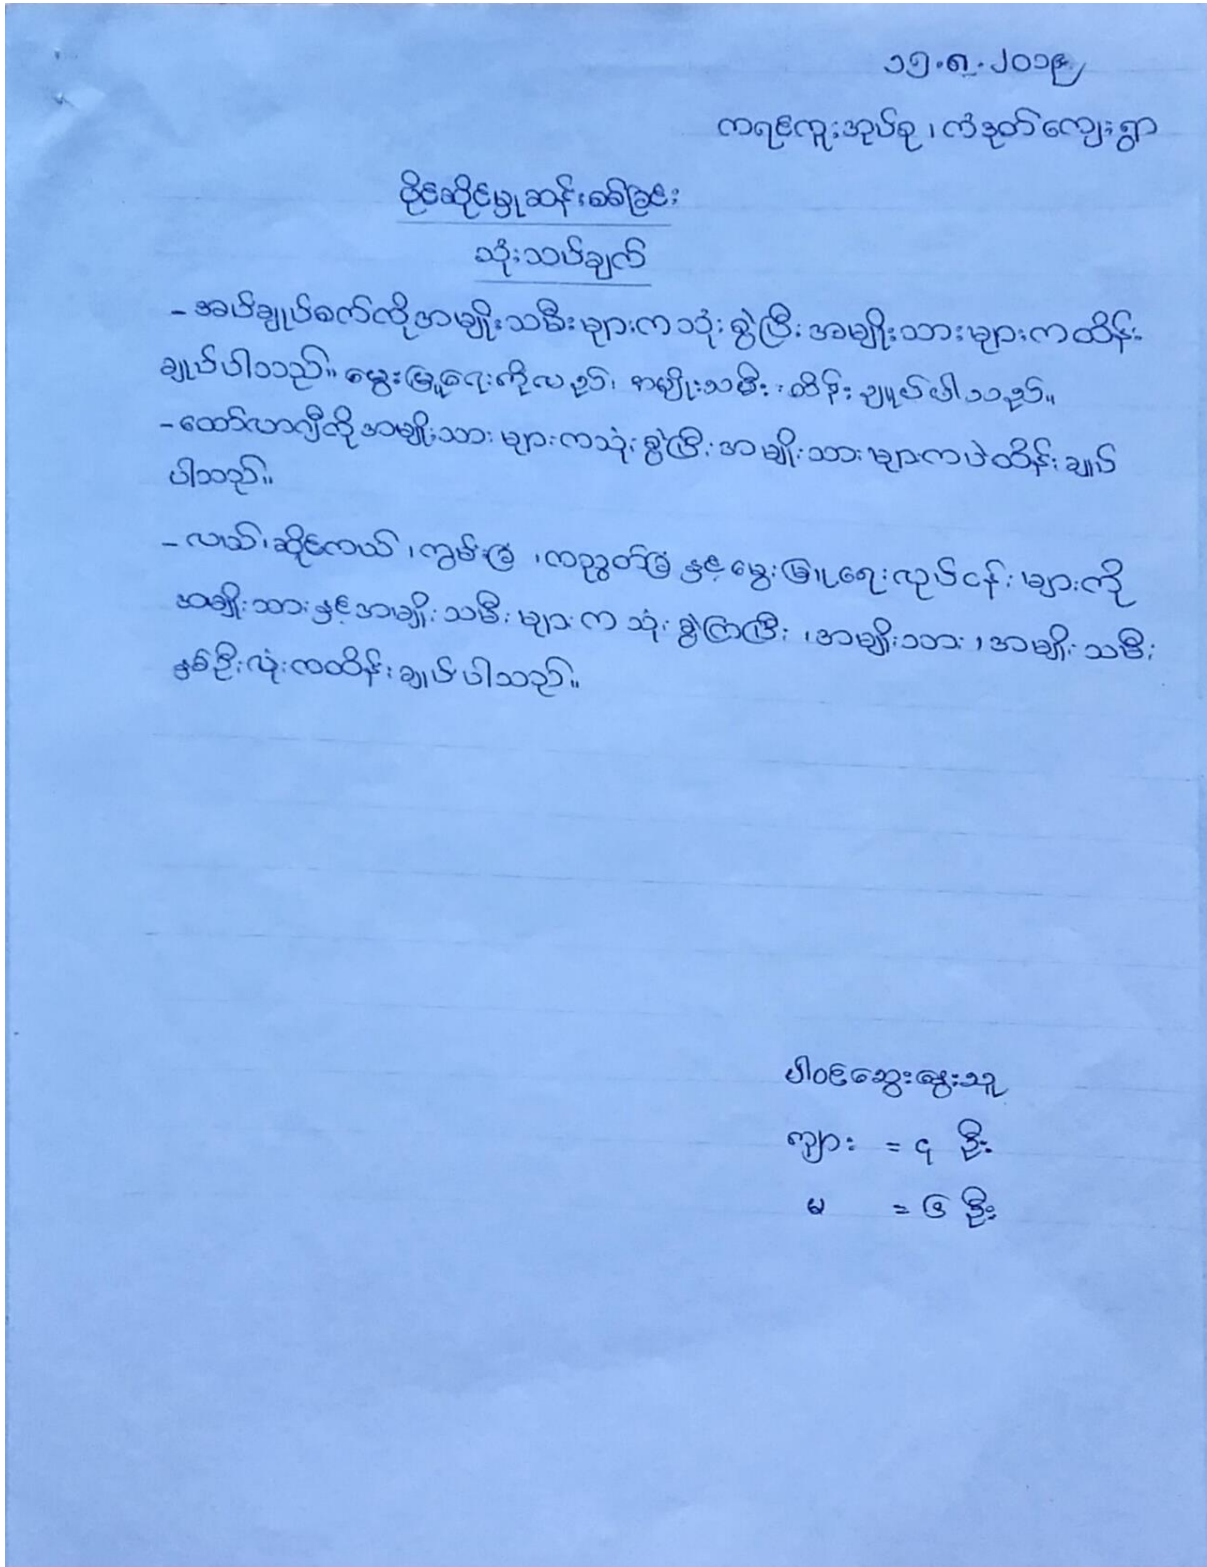 ၁၅.၈.၂၀၁၉
ကရင်ကူးအုပ်စု ၊ ကံဒုတ်ကျေးရွာ
ပိုင်ဆိုင်မှုဆန်းစစ်ခြင်း
သုံးသပ်ချက်
- အပ်ချုပ်စက်ကိုအမျိုးသမီးများကသုံးစွဲပြီးအမျိုးသားများကထိန်း
ချုပ်ပါသည်။ မွေးမြူရေးကိုလည်း အမျိုးသမီး ထိန်းချုပ်ပါသည်။
- ထော်လာဂျီကိုအမျိုးသားများကသုံးစွဲပြီးအမျိုးသားများကပဲထိန်းချုပ်
ပါသည်။
- လယ်၊ ဆိုင်ကယ် ၊ ကွမ်းခြံ ၊ ကညွတ်ခြံ နှင့်မွေးမြူရေးလုပ်ငန်းများကို
အမျိုးသားနှင့်အမျိုးသမီးများက သုံးစွဲကြပြီး ၊ အမျိုးသား ၊ အမျိုးသမီး
နှစ်ဦးလုံးကထိန်းချုပ်ပါသည်။
ပါဝင်ဆွေးနွေးသူ
ကျား = ၄ ဦး
မ = ၆ ဦး